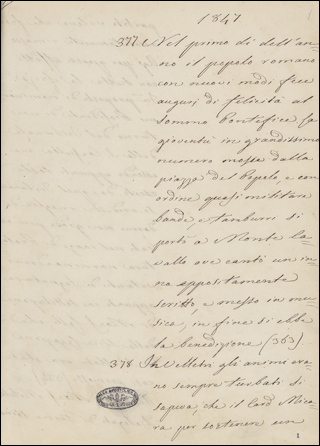 1847
377 Nel primo dì dell'an=
no il popolo romano
con nuovi modi fece
auguri di felicità al
sommo Pontefice, la
gioventù in grandissimo
numero mosse dalla
piazza del Popolo, e con
ordine quasi militare
bande, e tamburri si
portò a Monte Ca=
vallo ove cantò un in=
no appositamente
scritto, e messo in mu=
sica, in fine si ebbe
la benedizione (363)
378 In Velletri gli animi era=
no sempre turbati si
sapeva, che il Card Mica=
ra per sostenere un
1